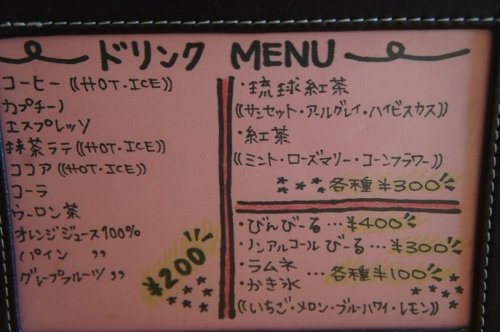 ドリンク MENU
コーヒー ((HOT・ICE))
カプチーノ
エスプレッソ
抹茶ラテ ((HOT・ICE))
ココア ((HOT・ICE))
コーラ
ウーロン茶
オレンジジュース100%
パイン 〃
グレープフルーツ 〃
¥200
・琉球紅茶
((サンセット・アールグレイ・ハイビスカス))
・紅茶
((ミント・ローズマリー・コーンフラワー))
各種 ¥300
・びんびーる…¥400
・ノンアルコールびーる…¥300
・ラムネ
・かき氷 …各種¥100
((いちご・メロン・ブルーハワイ・レモン))